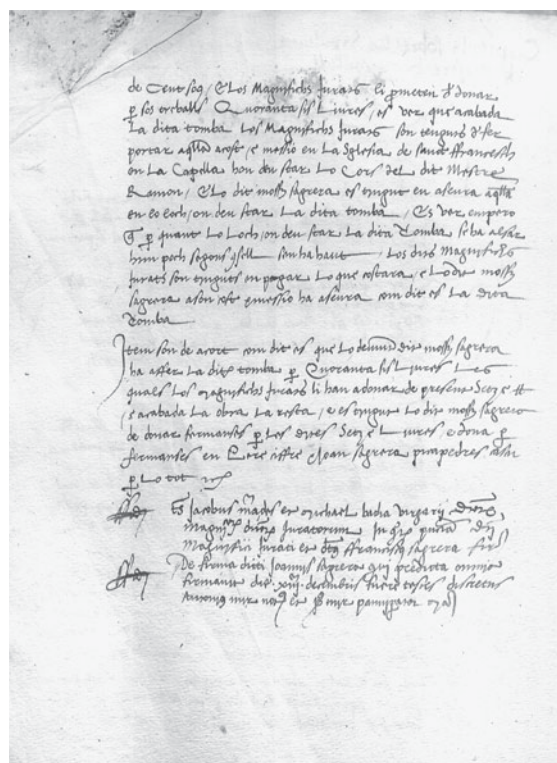 de Cent sog / E los Magnifichs Jurats li prometen de donar
per sos treballs Quoranta sis Liures / es ver que acabada
La dita tomba Los Magnifichs Jurats son tenguts de fer
portar aqlla acost / e messio en La Sglesia de sanct ffrancesch
en La Capella hon deu star Lo Cors del dit Mestre
Ramon / E lo dit mossen sagrera es tengut en aseura aqlla
en lo loch / on deu star La dita tomba / Es ver empero
que per quant Lo Loch / on deu star La dita Tomba se ha alsar
hun poch segons sen ha haut Los dits Magnifichs
Jurats son tenguts en pagar Lo que costara / e lo dit mossen
sagrera a son cost e messio ha aseura com dit es La dita
Tomba
Item son de acort com dit es que Lo dit mossen sagrera
ha affer La dita tomba per Quoranta sis Liures Les
quals Los magnifichs Jurats li han a donar de present Setze ll
e acabada La obra La resta / e es tengut Lo dit mossen sagrera
de donar fermanses per Les dites Setze Liures / e dona per
fermanses en Pere Joan sagrera picapedres
per Lo tot
Ts Jacobus et michael badia virgarij dictorum
Magnif. Juratorum In
Magnifici Jurati et ffranciscus sagrera
De firma dicti Joannis sagrera qui predicta omnia
firmauit die xxiij decembris fuere testes discretus
mir et mir